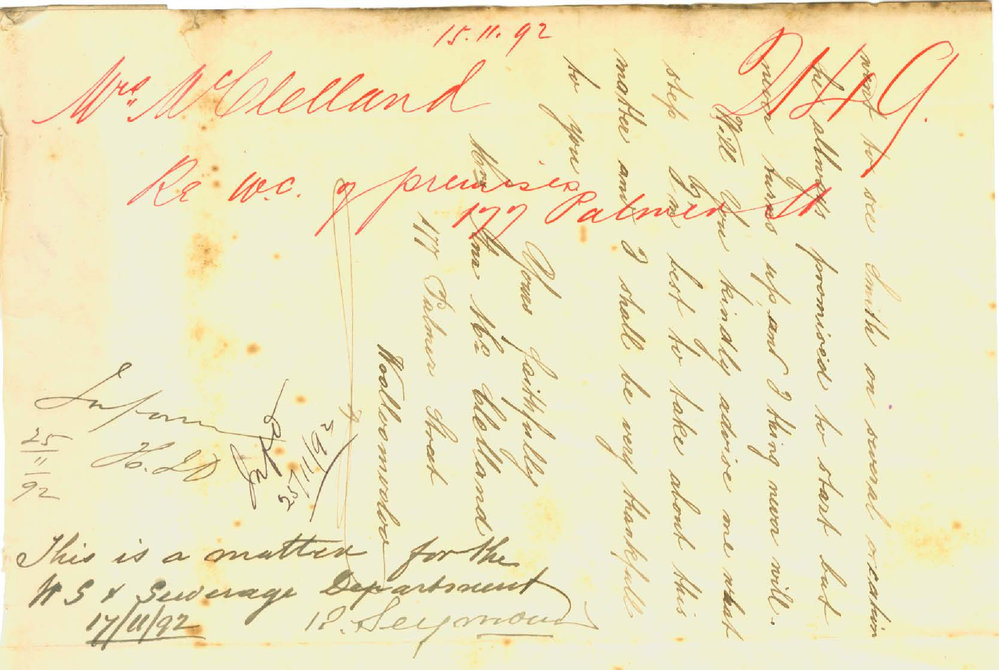 15.11.92
Mrs. McClelland
2149.
Re W.C. of premises
177 Palmer St
went to see Smith on several occation
he allways promised to start but
never turns up, and I thing never will.
Will you kindly advise me what
step Im best to take about this
matter and I shall be very thankfull
to you
Yours faithfully
Mc Clelland
177 Palmer Street
Woolloomooloo
Inform
25/11/92
Infd
25/11/92
This is a matter for the
W S & Sewerage Department
17/11/92 R. Seymour